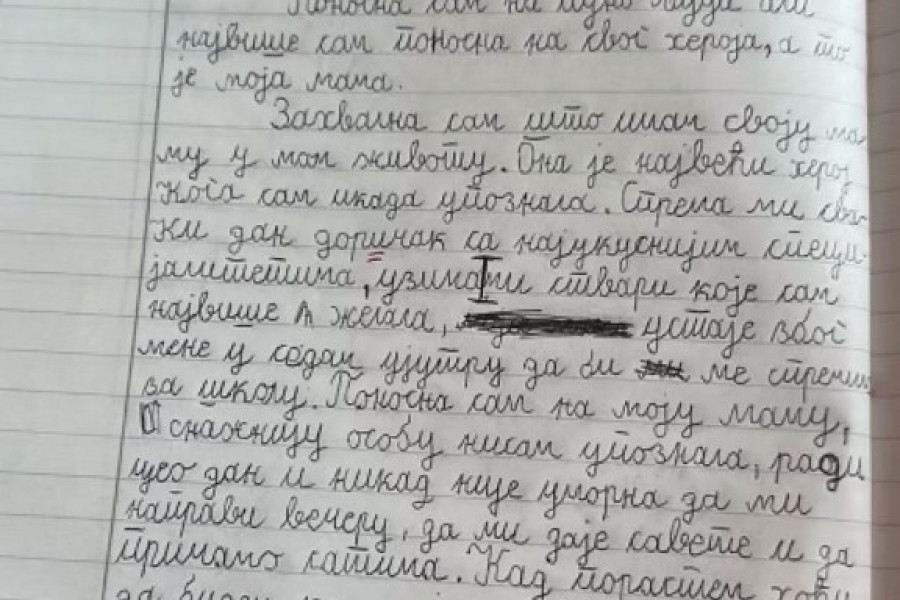 Поносна сам на пуно људи али
највише сам поносна на свог хероја, а то
је моја мама.
Захвална сам што имам своју ма-
му у мом животу. Она је највећи херој
кога сам икада упознала. Спрема ми сва-
ки дан доручак са најукуснијим специ-
јалитетима, узима ми ствари које сам
највише желела, устаје због
мене у седам ујутру да би ме спремила
за школу. Поносна сам на моју маму,
снажнију особу нисам упознала, ради
цео дан и никад није уморна да ми
направи вечеру, да ми даје савете и да
причамо сатима. Кад порастем хоћу
да будем